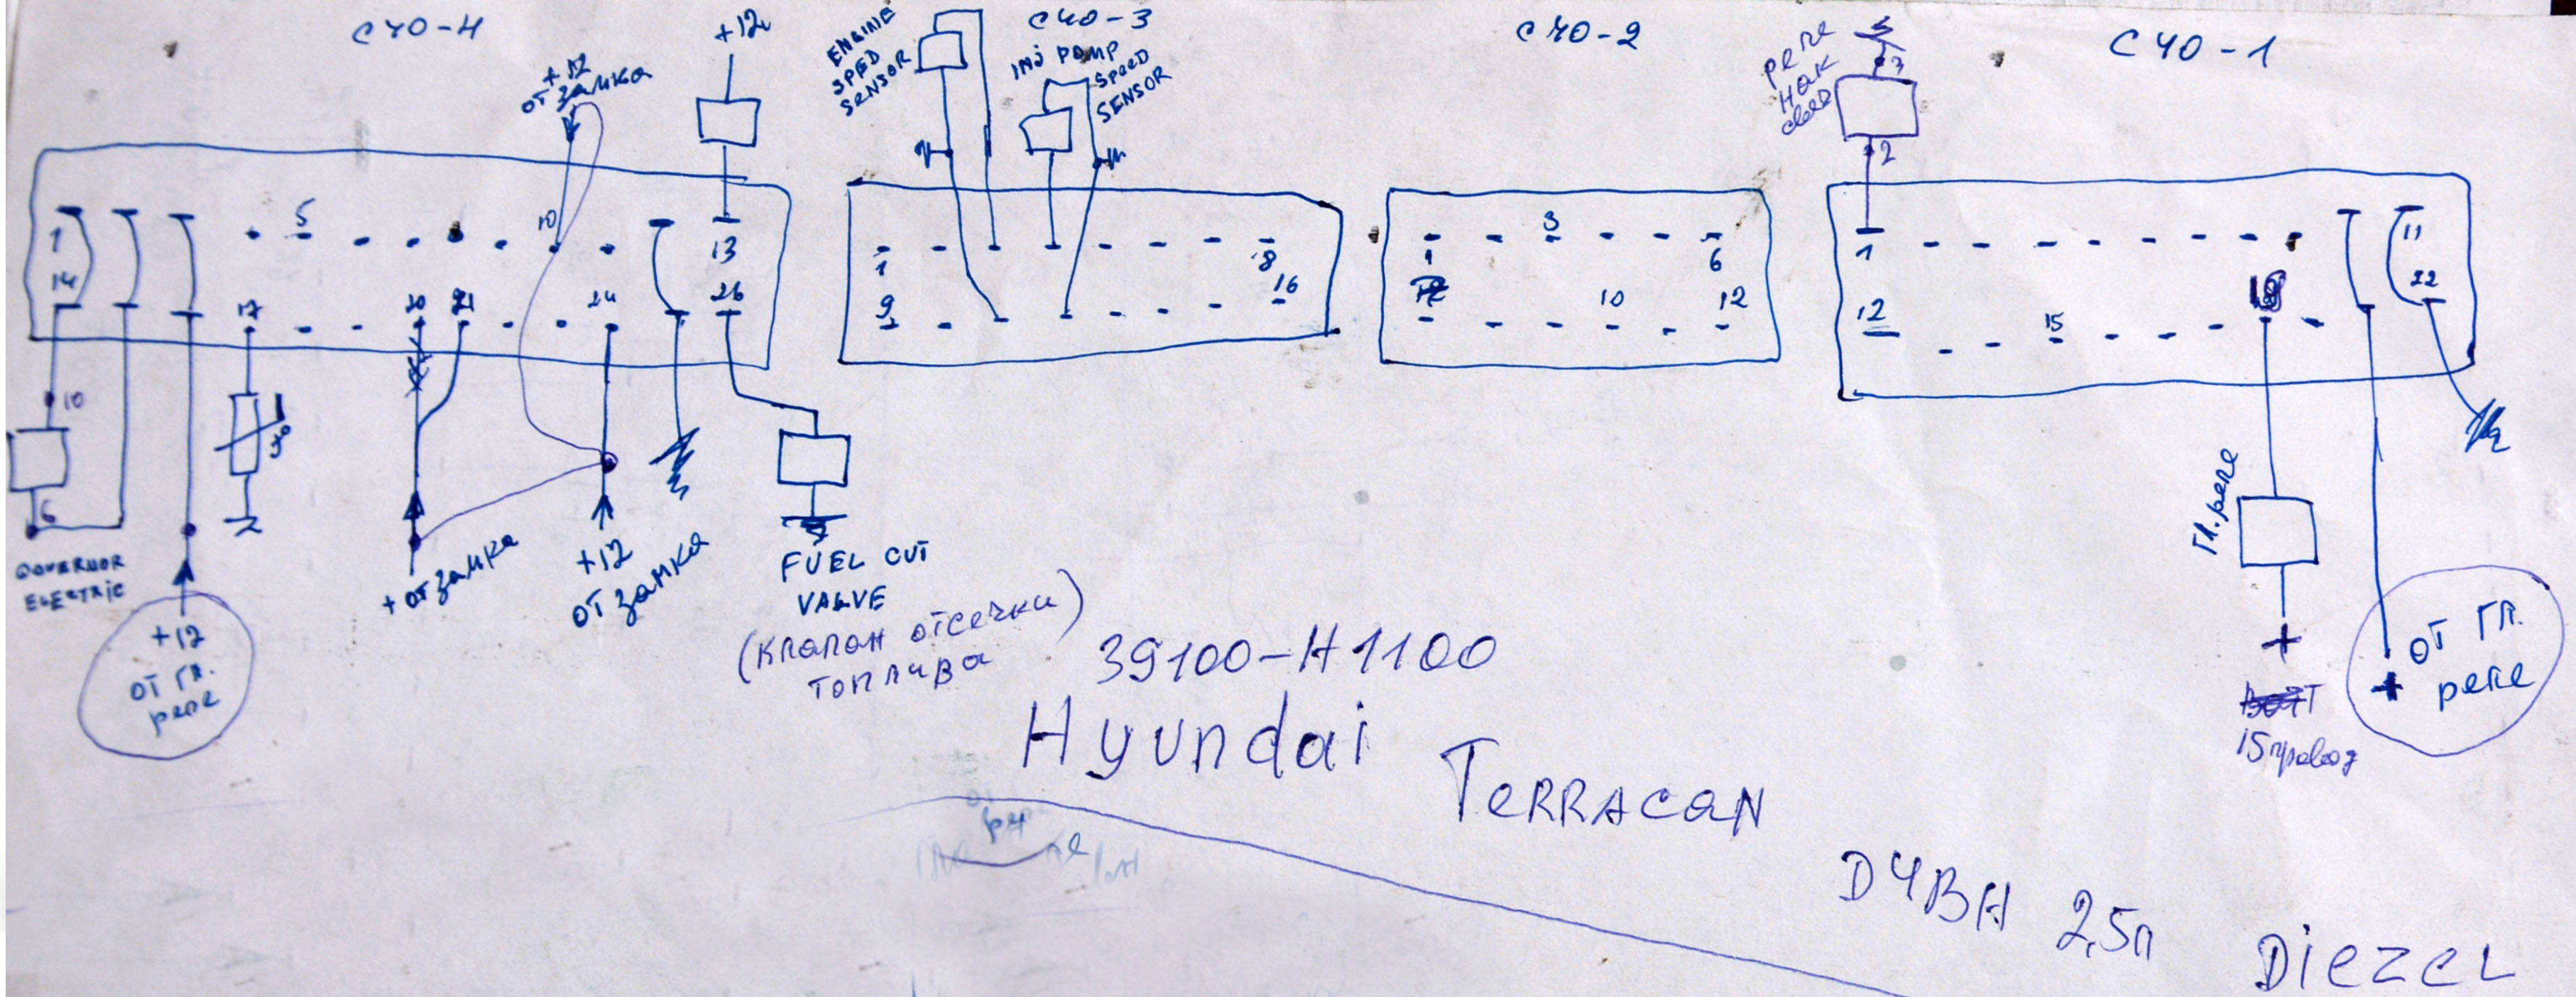 C40-4
C40-3
C40-2
C40-1
+12
от замка
+12
ENGINE
SPED
SENSOR
INJ PAMP
SPEED
SENSOR
реле
нак
свеч
3
2
1
5
10
13
14
17
20
21
24
26
1
8
9
16
1
3
6
10
12
1
11
12
15
18
22
10
6
t°
GOVERNOR
ELECTRIC
+12
от гл.
реле
+ от замка
+12
от замка
FUEL CUT
VALVE
(клапан отсечки
топлива)
гл. реле
+
15 провод
от гл.
реле
+
39100-H1100
Hyundai
TERRACAN
D4BH 2,5л DIEZEL